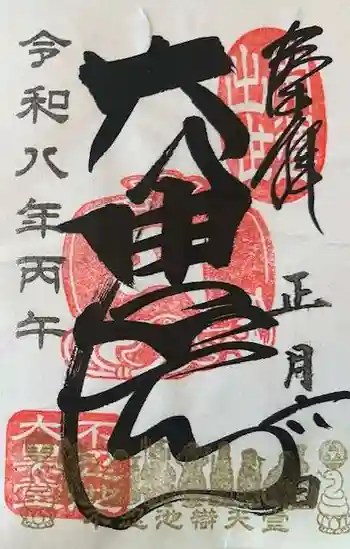 奉拝
出世
正月
大黒天
令和八年丙午
不忍池
大黒堂
不忍池辯天堂